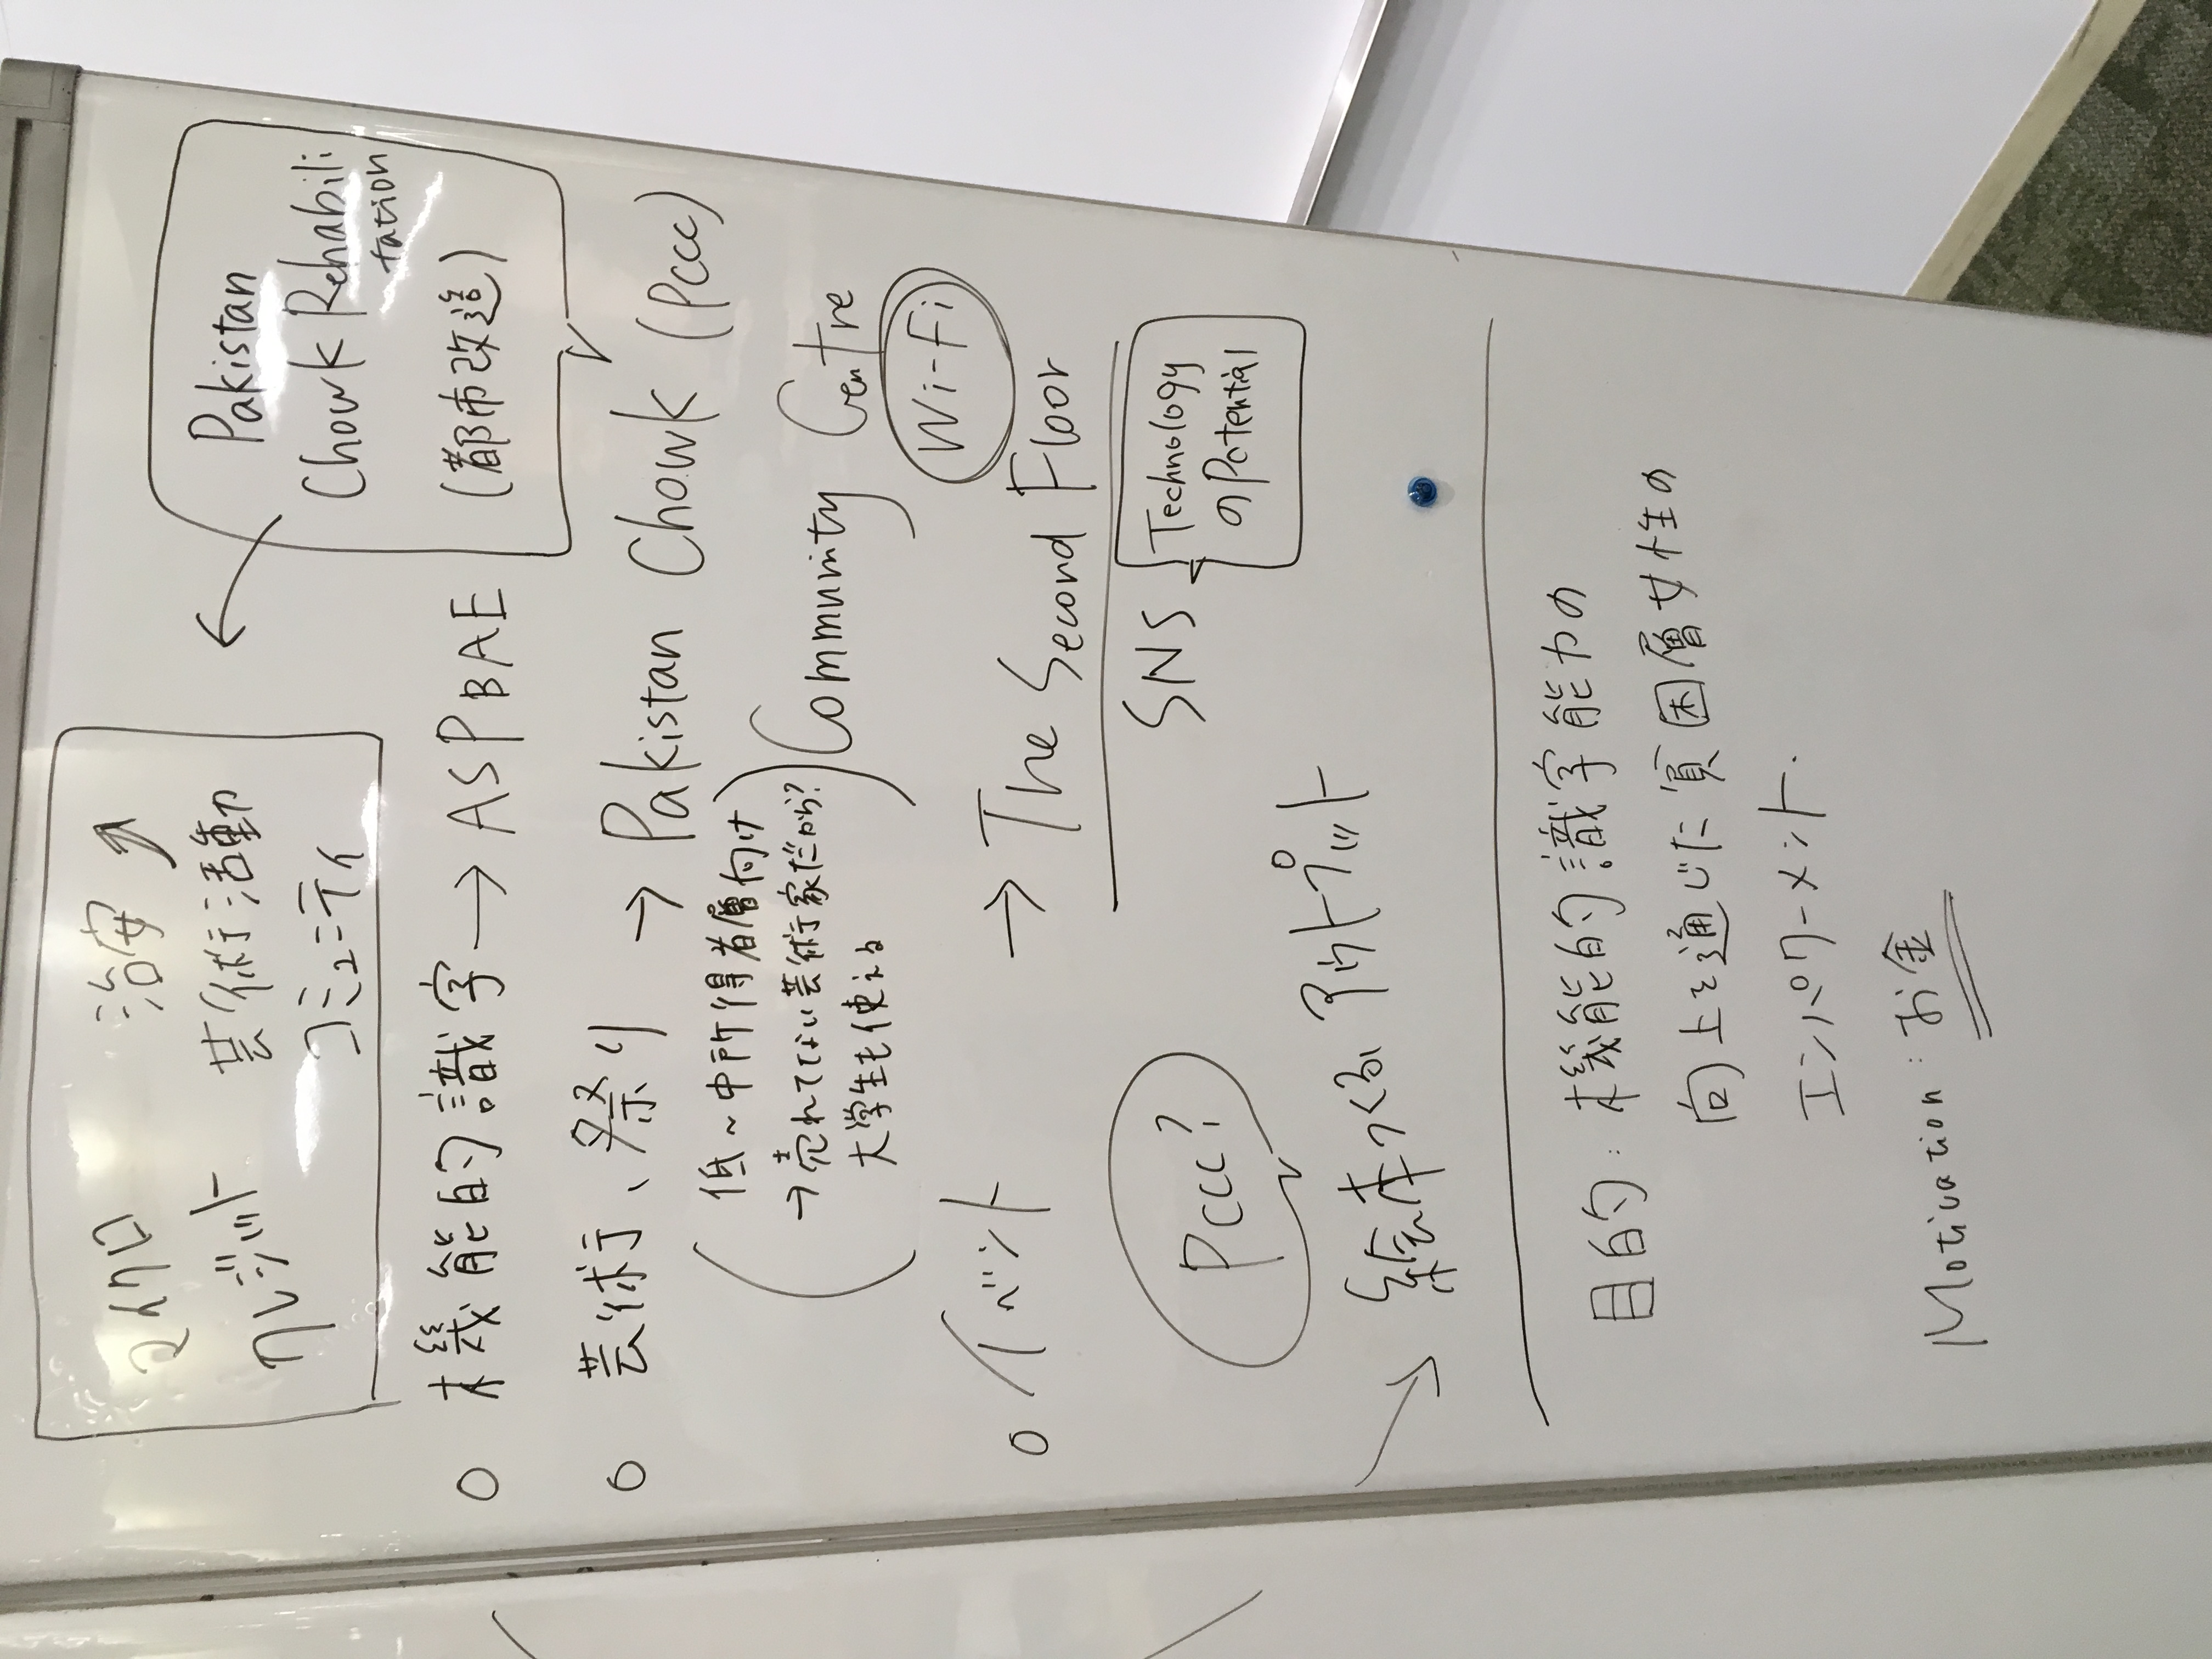 マイクロ
クレジット
治安 ↗
芸術活動
コミュニティ
←
Pakistan
Chowk Rehabili
tation
(都市改造)
○ 機能的識字 → ASPBAE
○ 芸術、祭り → Pakistan Chowk (PCCC)
Community Centre
(低~中所得者層向け
→売れてない芸術家だから?
大学生も使える)
Wi-Fi
○ イベント → The Second Floor
SNS
Technology
のPotential
PCCC?
→ 絵本つくる、アウトプット
目的: 機能的識字能力の
向上を通じた貧困層女性の
エンパワーメント.
Motivation: お金